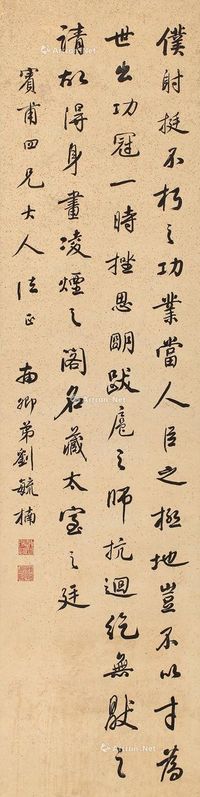 僕射挺不朽之功業當人臣之極地豈不以才為
世出功冠一時挫思明跋扈之師抗迴紇無猒之
請故得身畫淩煙之閣名藏太室之廷
賓甫四兄大人法正 南卿弟劉毓楠